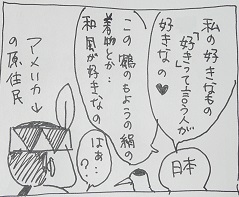 私の好きなもの
「好き」って言う人が
好きなの♥
この鶴のもようの絹の
着物とか…
和風が好きなの
はぁ…?
日本
アメリカ
の原住民